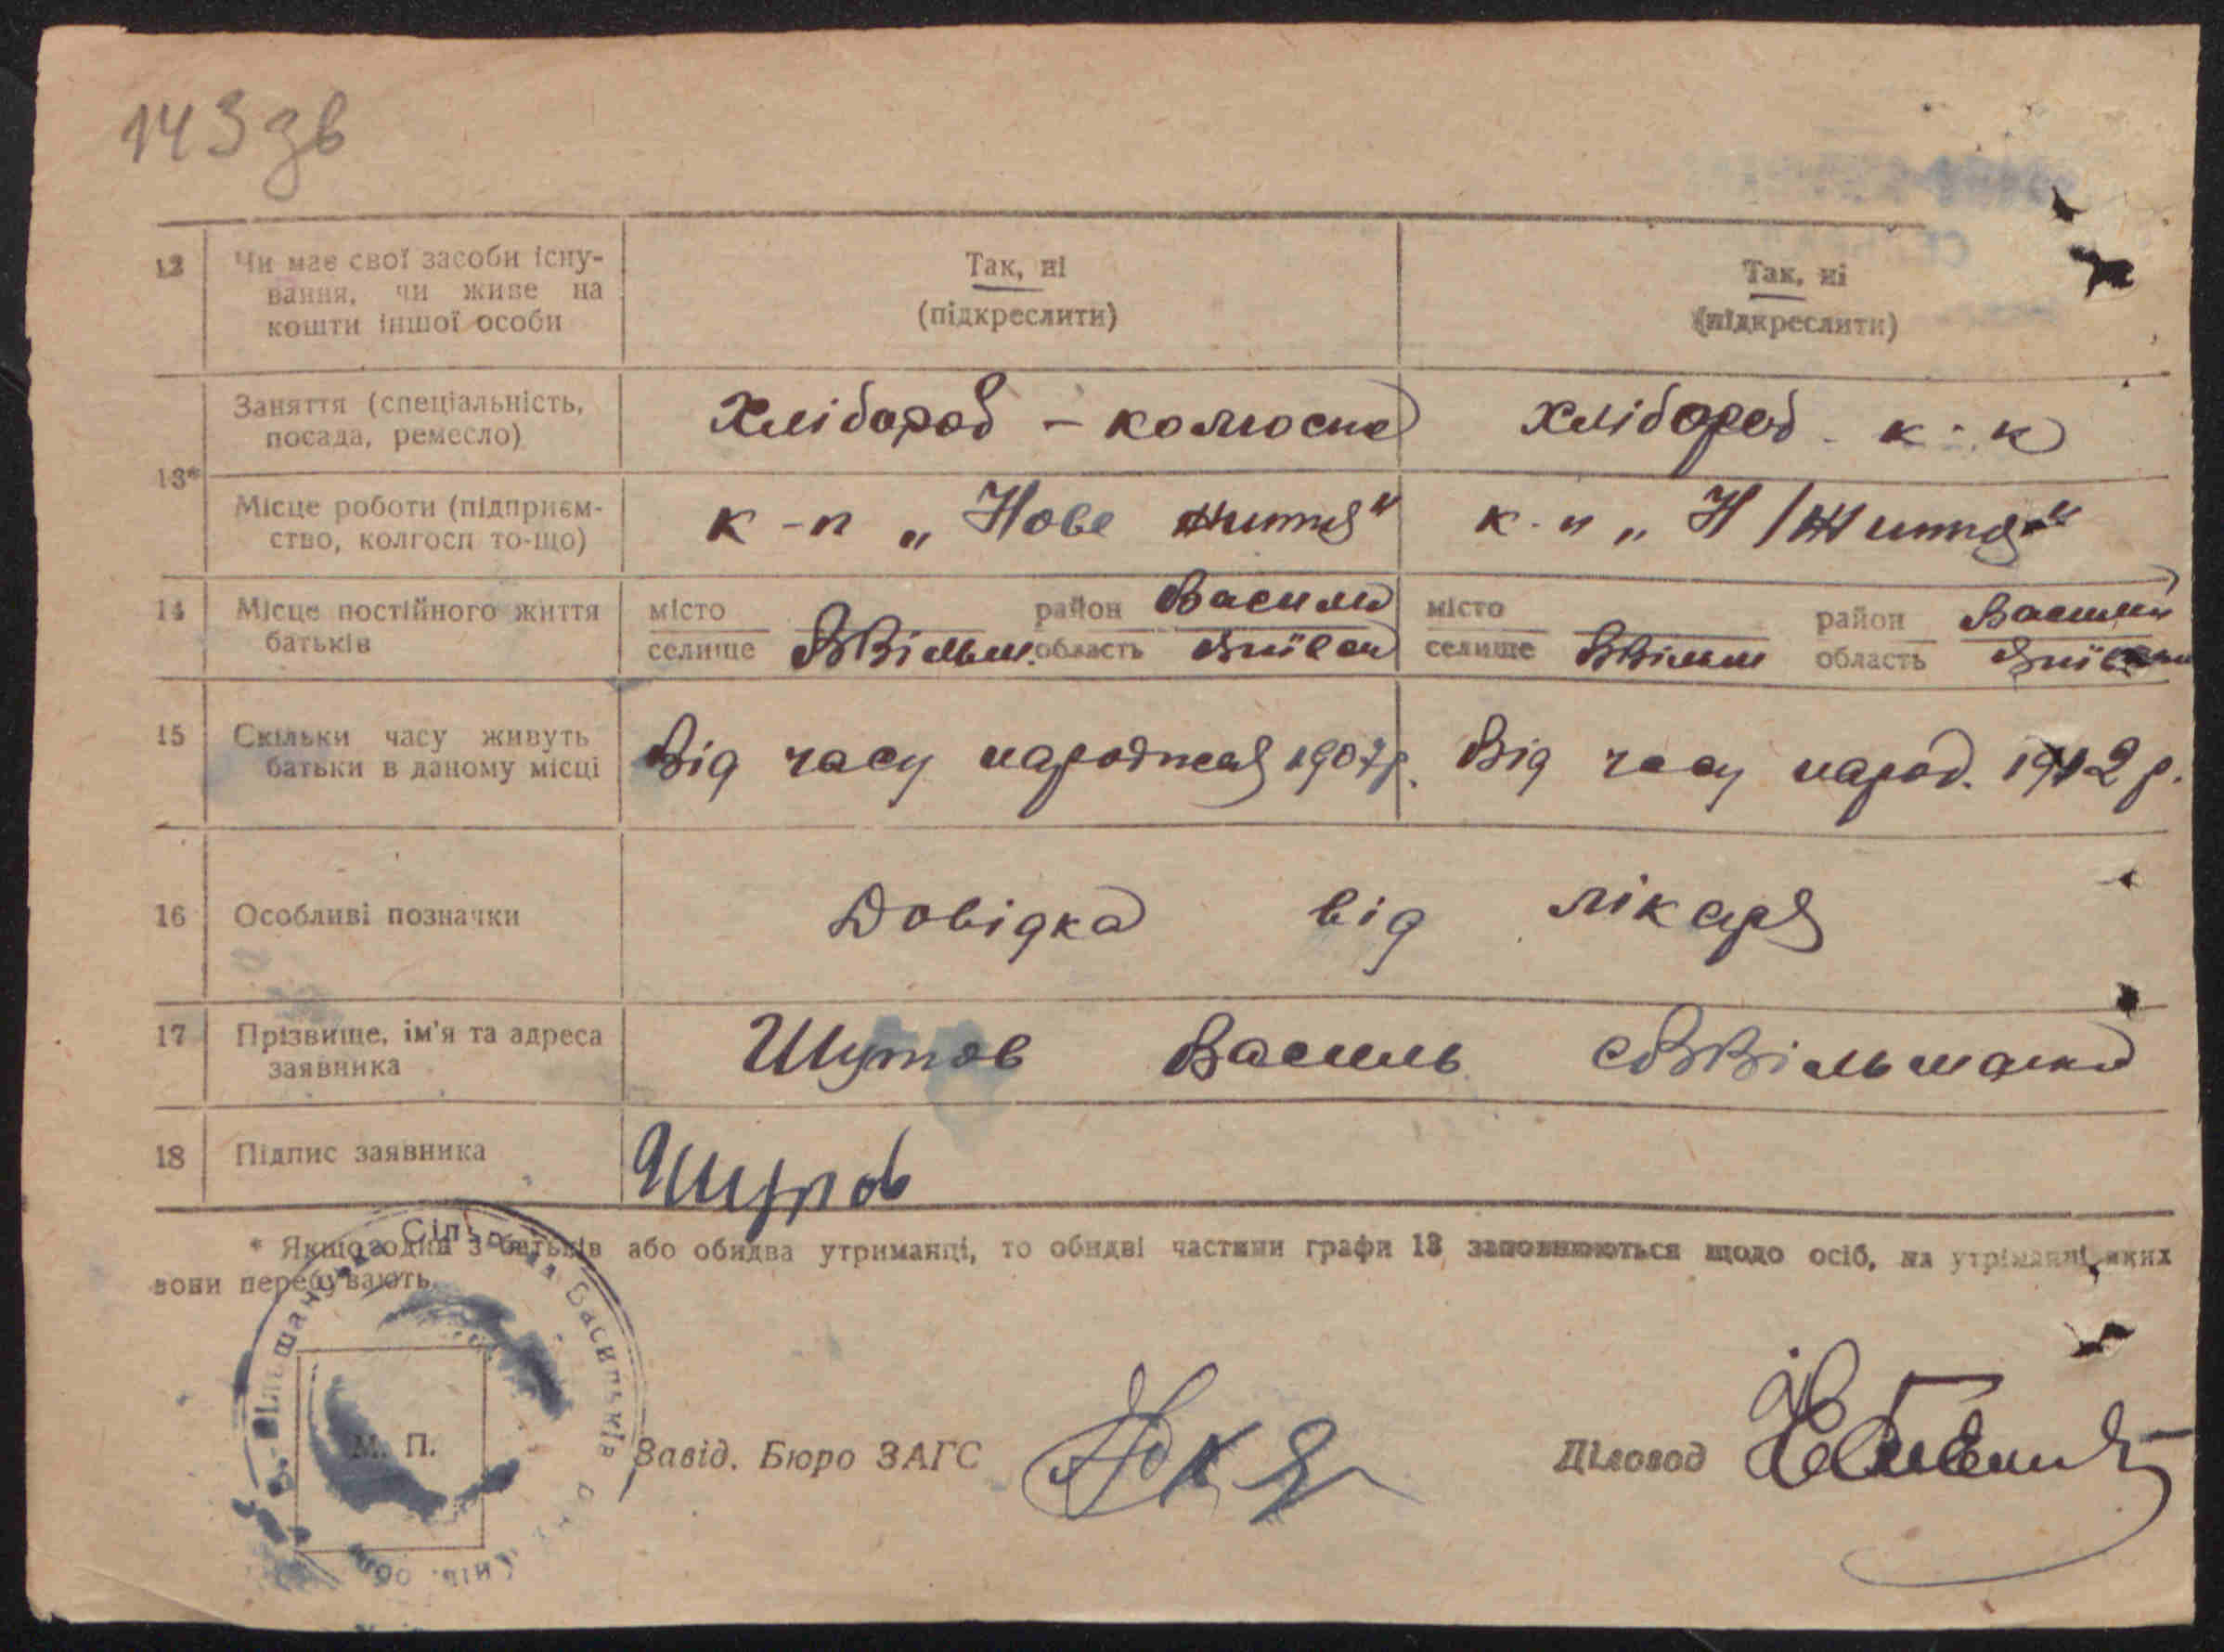 143 зв
12 Чи має свої засоби існу-
вання, чи живе на
кошти іншої особи
Так, ні
(підкреслити)
Так, ні
(підкреслити)
13*
Заняття (спеціальність,
посада, ремесло)
Хлібороб -
Хлібороб - к-к
Місце роботи (підприєм-
ство, колгосп то-що)
к-п „Нове життя"
к-п „Н/Життя"
14 Місце постійного життя
батьків
місто
селище ВВільш.
район Васильк
область Київськ
місто
селище ВВільш
район Васильк
область Київськ
15 Скільки часу живуть
батьки в даному місці
Від часу народження 1907 р.
Від часу народ. 1912 р.
16 Особливі позначки
Довідка від лікаря
17 Прізвище, ім'я та адреса
заявника
Шутов Василь с ВВільшанка
18 Підпис заявника
Шутов
* Якщо один з батьків або обидва утриманці, то обидві частини графи 13 заповнюються щодо осіб, на утріманні яких
вони перебувають.
В.-Вільшанська Сільрада Васильків Київ. обл.
М. П.
Завід. Бюро ЗАГС
Діловод